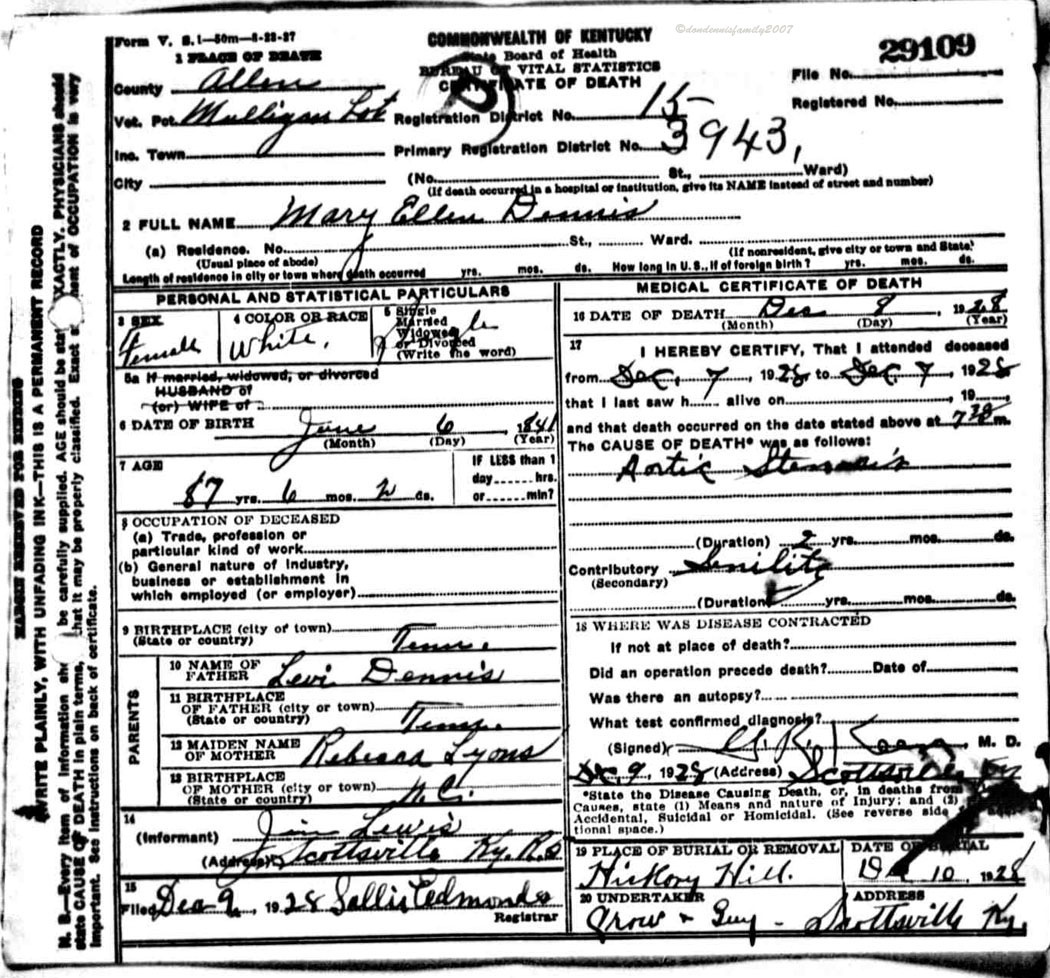 ©dondennisfamily2007
Form V. S. 1—50m—8-22-27
COMMONWEALTH OF KENTUCKY
State Board of Health
BUREAU OF VITAL STATISTICS
CERTIFICATE OF DEATH
29109
File No.
Registered No.
1 PLACE OF DEATH
County Allen
Vot. Pct. Mulligan Lot
Registration District No. 15
Inc. Town
Primary Registration District No. 3943,
City (No. St., Ward)
(If death occurred in a hospital or institution, give its NAME instead of street and number)
2 FULL NAME Mary Ellen Dennis
(a) Residence. No. St., Ward.
(Usual place of abode) (If nonresident, give city or town and State)
Length of residence in city or town where death occurred yrs. mos. ds. How long in U. S., if of foreign birth? yrs. mos. ds.
PERSONAL AND STATISTICAL PARTICULARS
3 SEX
Female
4 COLOR OR RACE
White.
5 Single
Married
Widowed
or Divorced
(Write the word)
Single
5a If married, widowed, or divorced
HUSBAND of
(or) WIFE of
6 DATE OF BIRTH June 6 1841
(Month) (Day) (Year)
7 AGE
87 yrs. 6 mos. 2 ds.
IF LESS than 1
day hrs.
or min?
8 OCCUPATION OF DECEASED
(a) Trade, profession or
particular kind of work
(b) General nature of Industry,
business or establishment in
which employed (or employer)
9 BIRTHPLACE (city or town)
(State or country) Tenn.
PARENTS
10 NAME OF
FATHER Levi Dennis
11 BIRTHPLACE
OF FATHER (city or town)
(State or country) Tenn.
12 MAIDEN NAME
OF MOTHER Rebecca Lyons
13 BIRTHPLACE
OF MOTHER (city or town)
(State or country) N. C.
14
(Informant) Jim Lewis
(Address) Scottsville Ky. R.
15
Filed Dec 9, 1928 Sallie Edmonds
Registrar
MEDICAL CERTIFICATE OF DEATH
16 DATE OF DEATH Dec 8 1928
(Month) (Day) (Year)
17
I HEREBY CERTIFY, That I attended deceased
from Dec, 7, 1928, to Dec 7, 1928
that I last saw h alive on , 19
and that death occurred on the date stated above at 7 30 m.
The CAUSE OF DEATH* was as follows:
Aortic Stenosis
(Duration) 2 yrs. mos. ds.
Contributory Senility
(Secondary)
(Duration) yrs. mos. ds.
18 WHERE WAS DISEASE CONTRACTED
If not at place of death?
Did an operation precede death? Date of
Was there an autopsy?
What test confirmed diagnosis?
(Signed) , M. D.
Dec 9, 1928 (Address) Scottsville, Ky
*State the Disease Causing Death, or, in deaths from
Causes, state (1) Means and nature of Injury; and (2)
Accidental, Suicidal or Homicidal. (See reverse side
tional space.)
19 PLACE OF BURIAL OR REMOVAL
Hickory Hill.
DATE OF BURIAL
10, 1928
20 UNDERTAKER
Crow & Guy -
ADDRESS
Scottsville Ky.
MARGIN RESERVED FOR BINDING
WRITE PLAINLY, WITH UNFADING INK—THIS IS A PERMANENT RECORD
N. B.—Every item of information be carefully supplied. AGE should be EXACTLY. PHYSICIANS should
state CAUSE OF DEATH in plain terms, that it may be properly classified. Exact of OCCUPATION is very
important. See instructions on back of certificate.